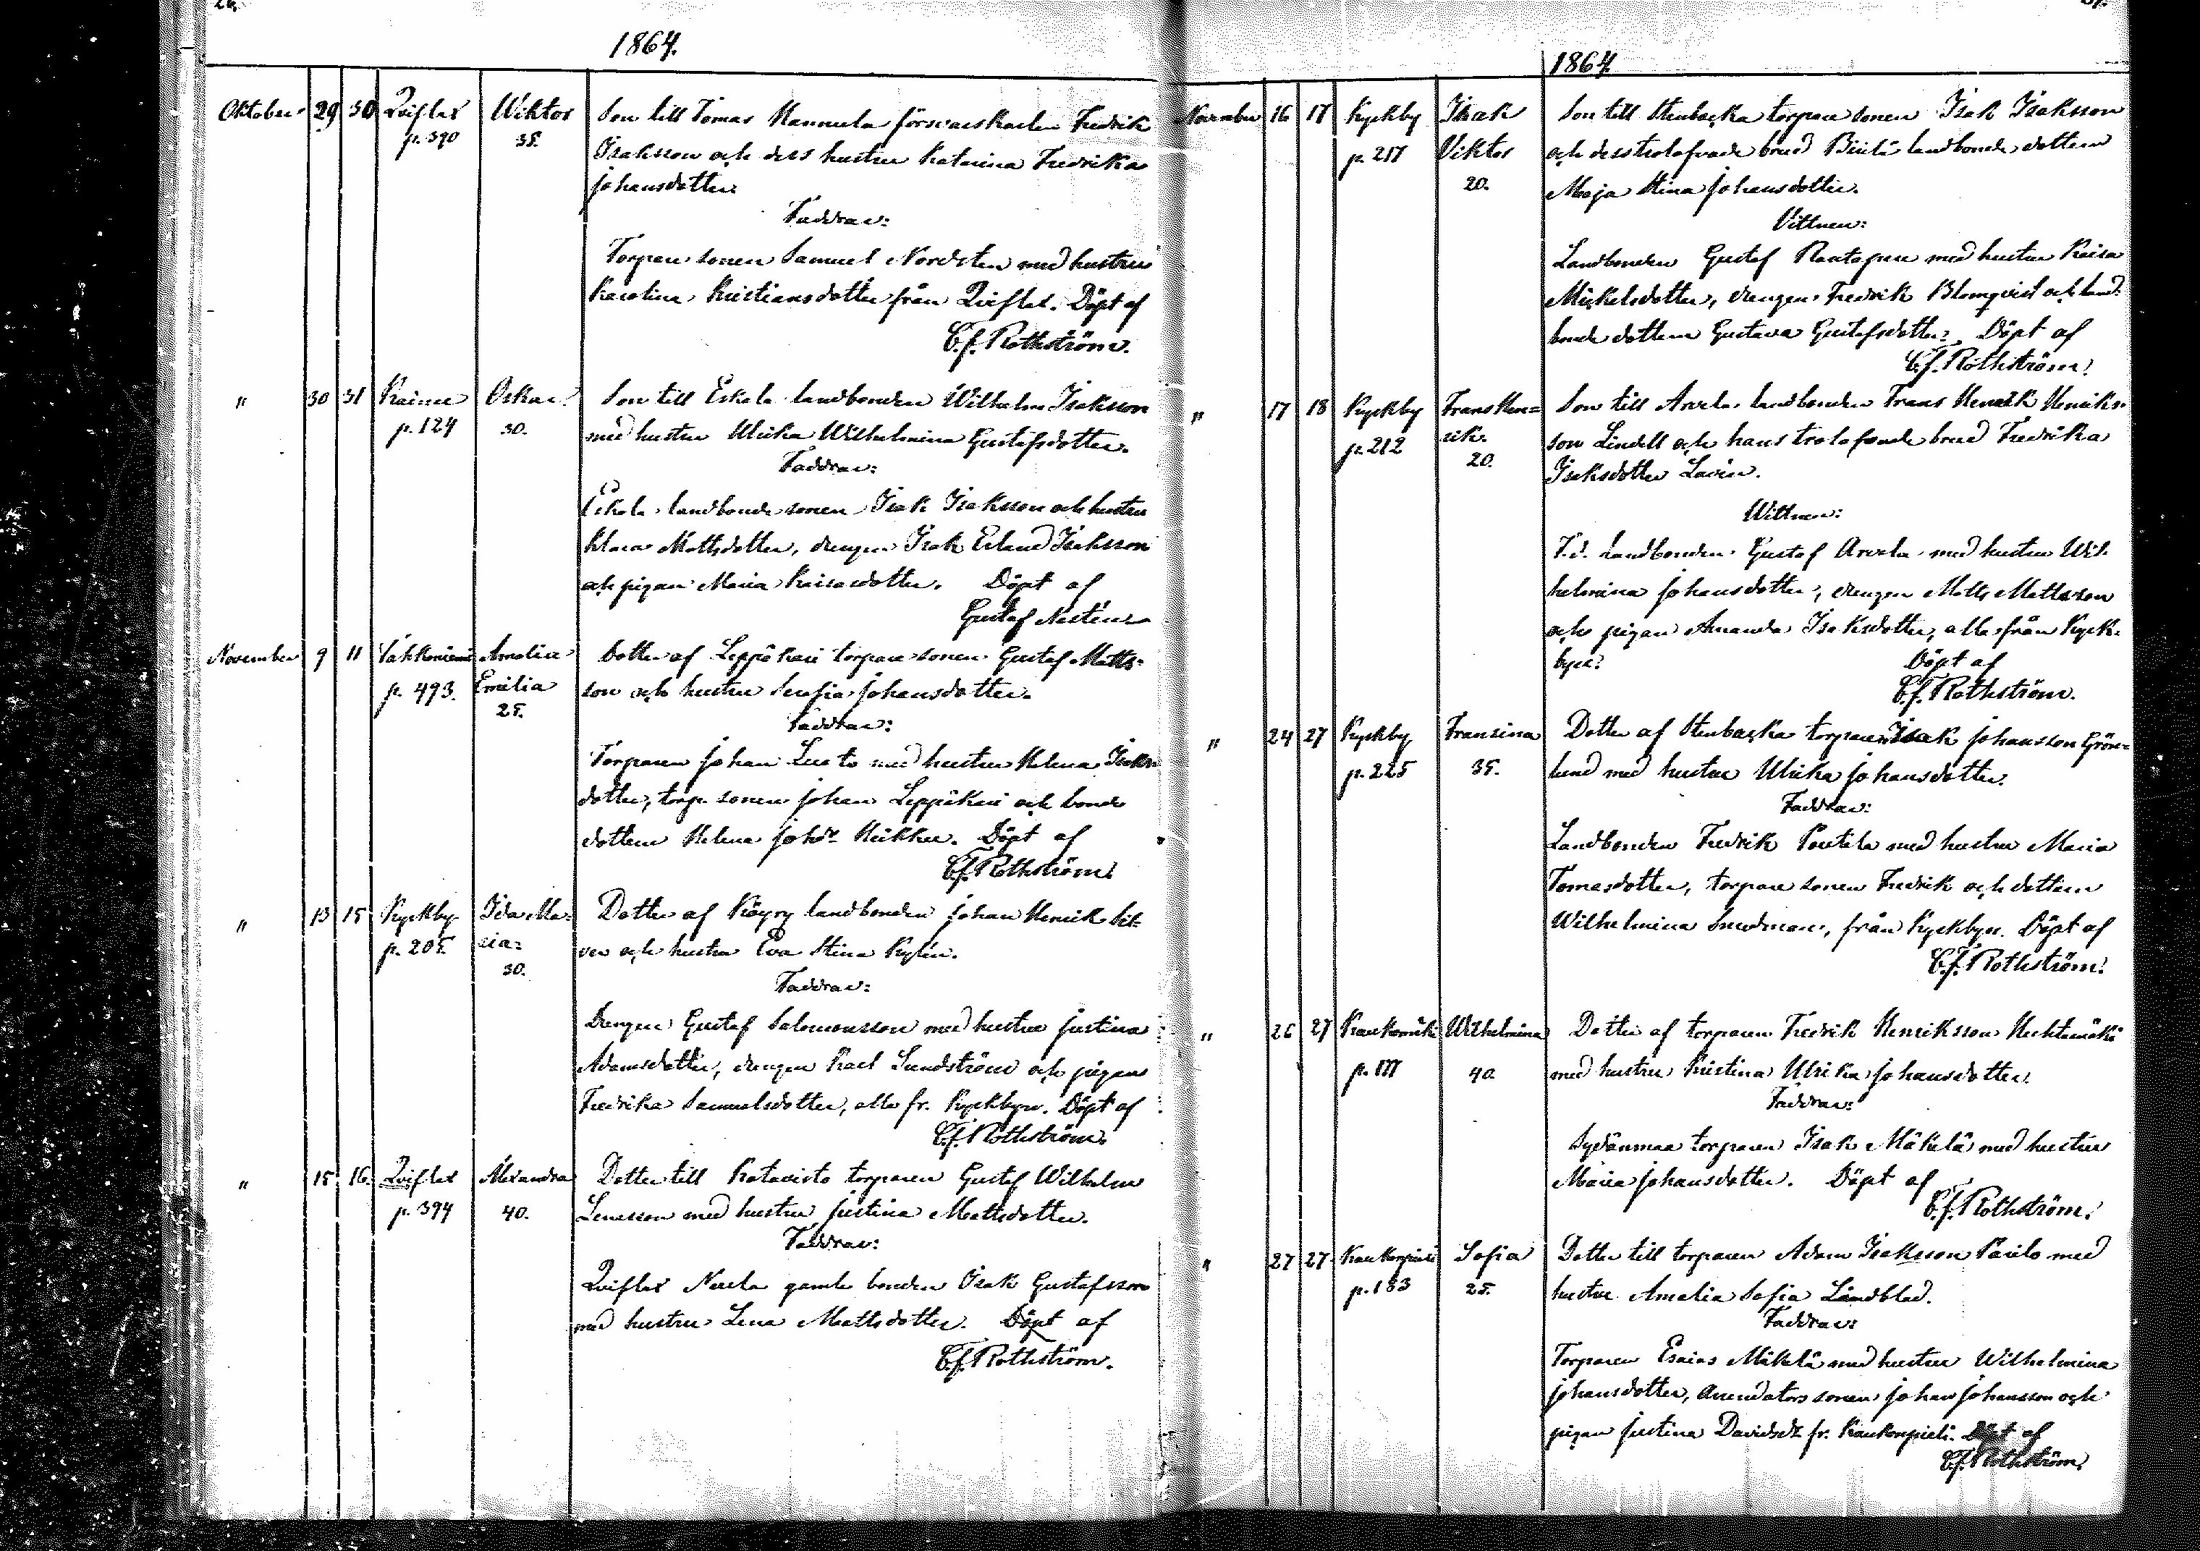 26.
1864.
Oktober 29 30 Qviflax Wiktor Son till Tomas Mannula försvarskarlen Fredrik
p. 390 35. Isaksson och dess hustru Katarina Fredrika
Johansdotter.
Faddrar:
Torpare sonen Samuel Nordsten med hustru
Karolina Kristiansdotter från Qviflax. Döpt af
C.f. Rothström.
" 30 31 Raimu Oskar. Son till Eskola landbonden Wilhelm Isaksson
p. 124 30. med hustru Ulrika Wilhelmina Gustafsdotter.
Faddrar:
Eskola landbonde sonen Isak Isaksson och hustru
Klara Mattsdotter, drengen Isak Erland Isaksson
och pigan Maria Kaisasdotter. Döpt af
Gustaf Nestén
November 9 11 Amalia Dotter af Leppäkari torpare sonen Gustaf Matts-
p. 493. Emilia son och hustru Serafia Johansdotter.
25.
Faddrar:
Torparen Johan Lusto med hustru Helena Isaks-
dotter, torp. sonen Johan Leppäkari och bonde
dottern Helena Johdr Heikku. Döpt af
C.f. Rothström.
" 13 15 Kyrkby Ida Ma- Dotter af Köyry landbonden Johan Henrik Sil-
p. 205. ria. ver och hustru Eva Stina Kylén.
30.
Faddrar:
Drengen Gustaf Salomonsson med hustru Justina
Adamsdotter, drengen Karl Sundström och pigan
Fredrika Samuelsdotter, alla fr. Kyrkbyn. Döpt af
C.f. Rothström.
" 15 16. Qviflax Alexandra Dotter till Katavisto torparen Gustaf Wilhelm
p. 394 40. Lenasson med hustru Justina Mattsdotter.
Faddrar:
Qviflax Nuula gamla bonden Isak Gustafsson
med hustru Lena Mattsdotter. Döpt af
C.f. Rothström.
1864
November 16 17 Kyrkby Isak Son till Stenbacka torpare sonen Isak Isaksson
p. 217 Viktor och dess trolofvade brud landbonde dottern
20. Maja Stina Johansdotter.
Vittnen:
Landbonden Gustaf Rantapere med hustru Kaisa
Mickelsdotter, drengen Fredrik Blomqvist och land-
bonde dottern Gustava Gustafsdotter. Döpt af
C.f. Rothström.
" 17 18 Kyrkby Frans Hen- Son till Arvela landbonden Frans Henrik Henriks-
p. 212 rik. son Lindell och hans trolofvade brud Fredrika
20. Isaksdotter Lavén.
Wittnen:
F.d. landbonden Gustaf Arvela med hustru Wil-
helmina Johansdotter, drengen Matts Mattsson
och pigan Amanda Isaksdotter, alla från Kyrk-
byn. Döpt af
C.f. Rothström.
" 24 27 Kyrkby Fransina Dotter af Stenbacka torparen Isak Johansson Grön-
p. 225 35. lund med hustru Ulrika Johansdotter.
Faddrar:
Landbonden Fredrik Pentela med hustru Maria
Tomasdotter, torpare sonen Fredrik och dottern
Wilhelmina Smedman, från Kyrkbyn. Döpt af
C.f. Rothström.
" 26 27 Kaukomäki Wilhelmina Dotter af torparen Fredrik Henriksson Huhtamäki
p. 177 40. med hustru Kristina Ulrika Johansdotter.
Faddrar:
Sydänmaa torparen Isak Mäkelä med hustru
Maria Johansdotter. Döpt af
C.f. Rothström.
" 27 27 Kaukonpieli Sofia Dotter till torparen Adam Isaksson Pävilo med
p. 183 25. hustru Amalia Sofia Landblad.
Faddrar:
Torparen Esaias Mäkelä med hustru Wilhelmina
Johansdotter, arrendators sonen Johan Johansson och
pigan Justina Davidsdr fr. Kaukonpieli. Döpt af
C.f. Rothström.